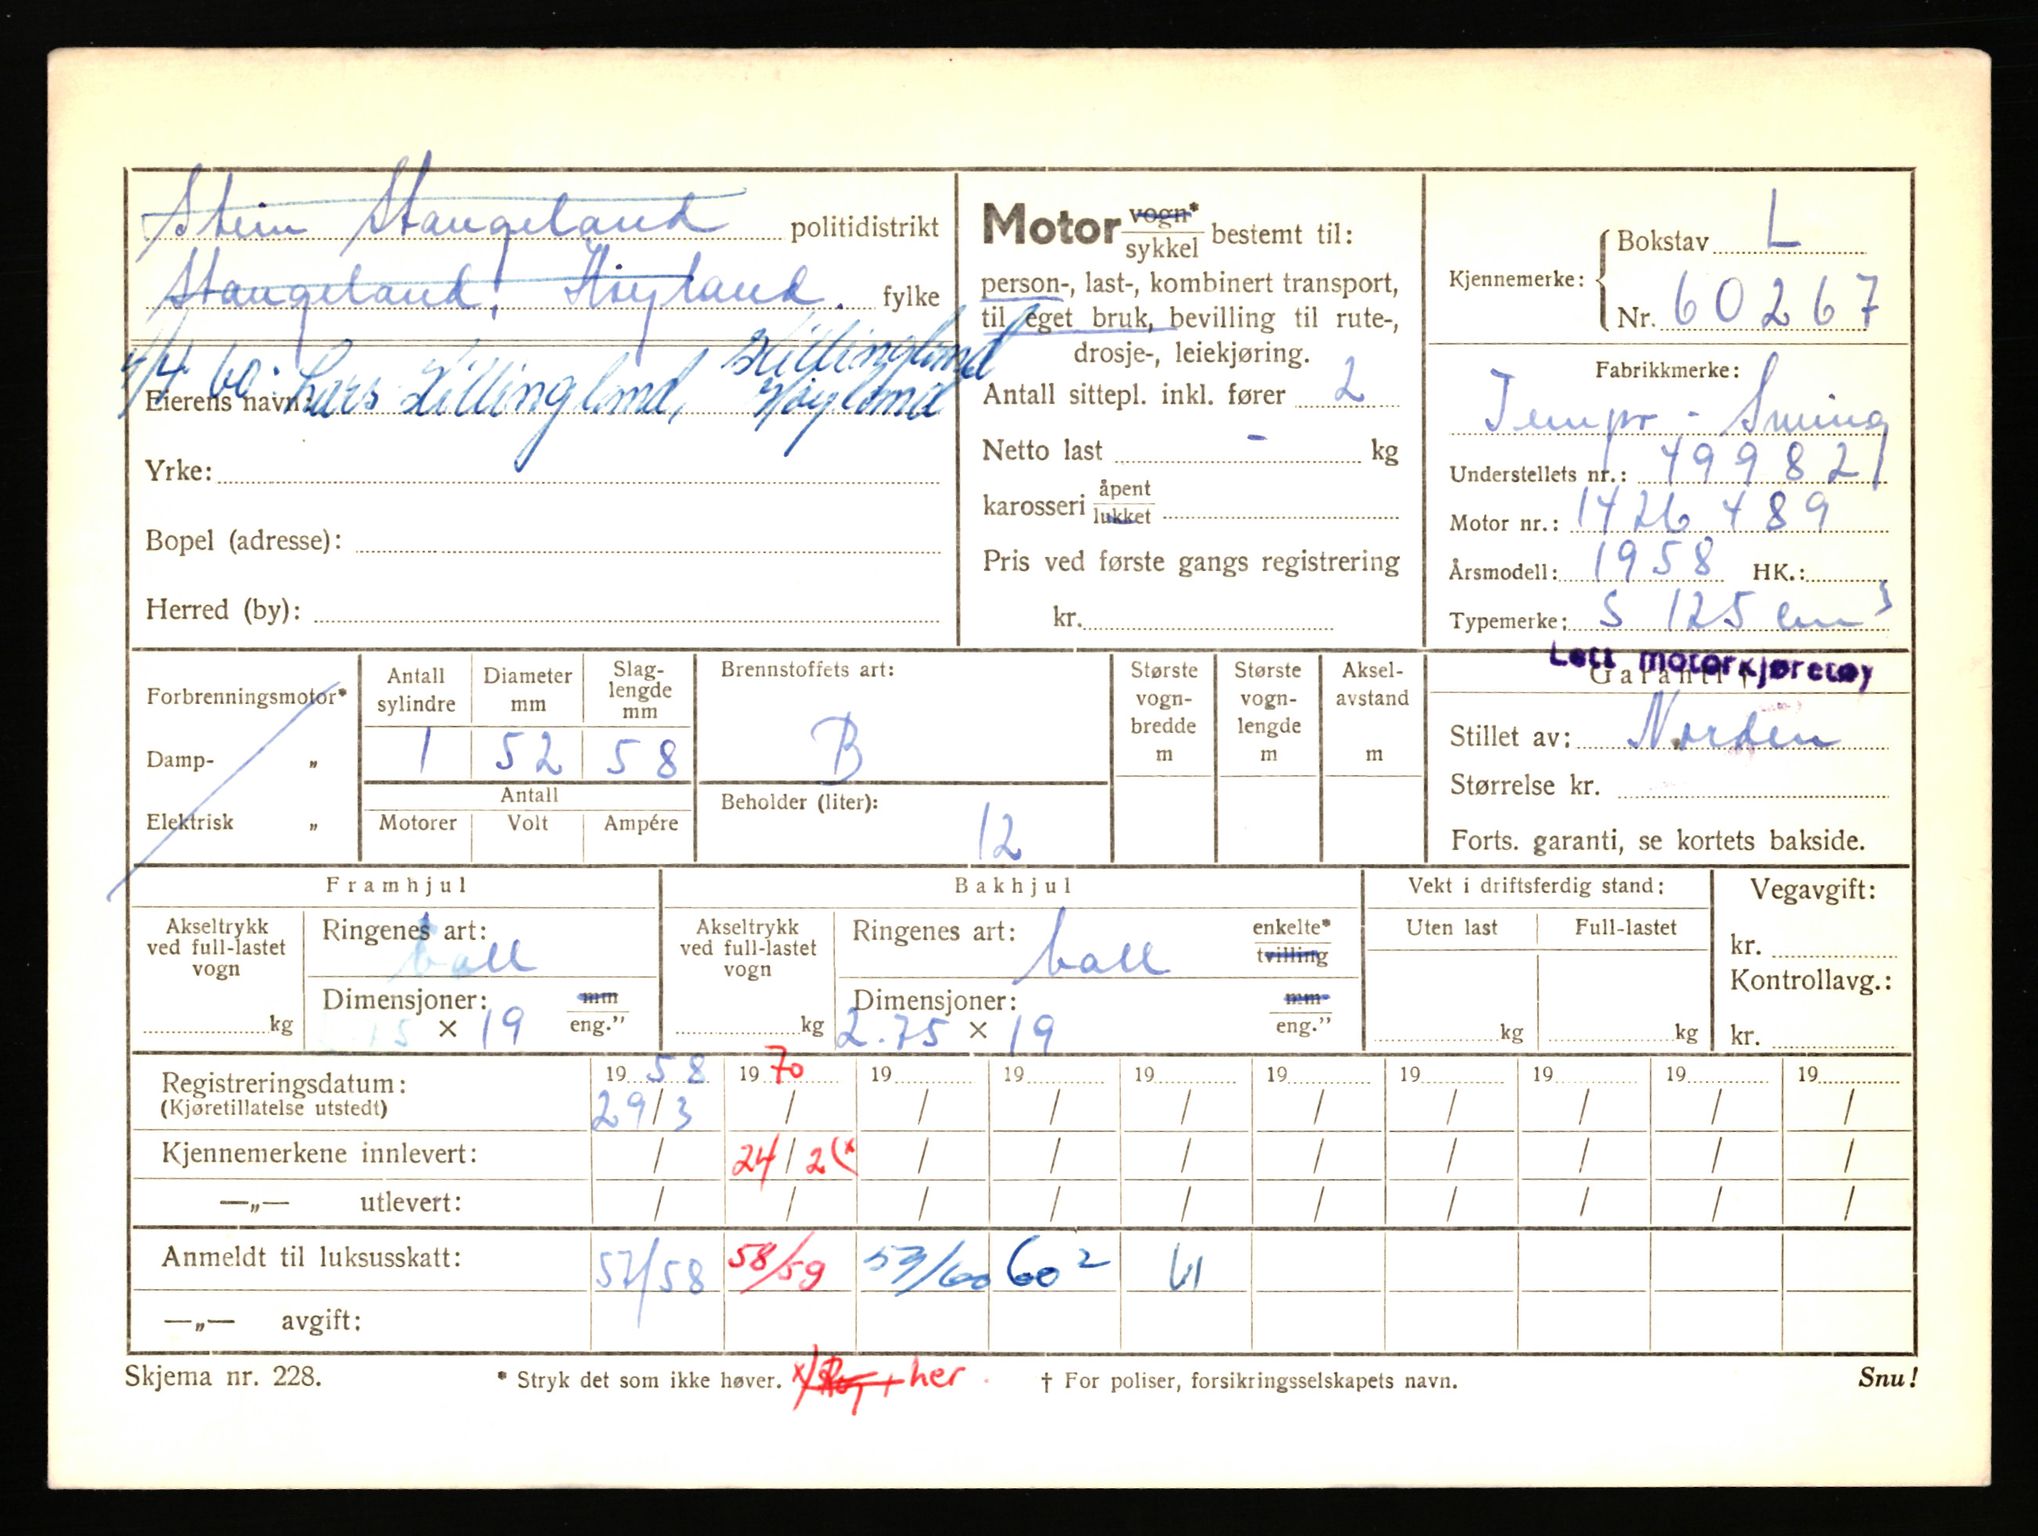 Stein Stangeland politidistrikt
Stangeland, Høyland. fylke
4/4 60. Lars Killingland, Killingland
Høyland
Eierens navn:
Yrke:
Bopel (adresse):
Herred (by):
Motor vogn* sykkel bestemt til:
person-, last-, kombinert transport,
til eget bruk, bevilling til rute-,
drosje-, leiekjøring.
Antall sittepl. inkl. fører 2
Netto last - kg
karosseri åpent lukket
Pris ved første gangs registrering
kr.
Kjennemerke: Bokstav L
Nr. 60267
Fabrikkmerke:
Tempo - Swing
Understellets nr.: 499821
Motor nr.: 1426489
Årsmodell: 1958 HK.:
Typemerke: S 125 cm3
Lett motorkjøretøy
Garanti †
Stillet av: Norden
Størrelse kr.
Forts. garanti, se kortets bakside.
Forbrenningsmotor*
Damp- „
Elektrisk „
Antall sylindre 1
Diameter mm 52
Slag-lengde mm 58
Antall
Motorer Volt Ampére
Brennstoffets art: B
Beholder (liter): 12
Største vogn-bredde m
Største vogn-lengde m
Aksel-avstand m
Framhjul
Akseltrykk ved full-lastet vogn kg
Ringenes art: ball
Dimensjoner: 2.75 × 19 mm eng.”
Bakhjul
Akseltrykk ved full-lastet vogn kg
Ringenes art: ball enkelte* tvilling
Dimensjoner: 2.75 × 19 mm eng.”
Vekt i driftsferdig stand:
Uten last Full-lastet
kg kg
Vegavgift:
kr.
Kontrollavg.:
kr.
Registreringsdatum: 1958 1970 19 19 19 19 19 19 19 19
(Kjøretillatelse utstedt) 29/3 / / / / / / / / /
Kjennemerkene innlevert: / 24/2 (x / / / / / / / /
—„— utlevert: / / / / / / / / / /
Anmeldt til luksusskatt: 57/58 58/59 59/60 60 2 61
—„— avgift:
Skjema nr. 228. * Stryk det som ikke høver. x) her. † For poliser, forsikringsselskapets navn. Snu!